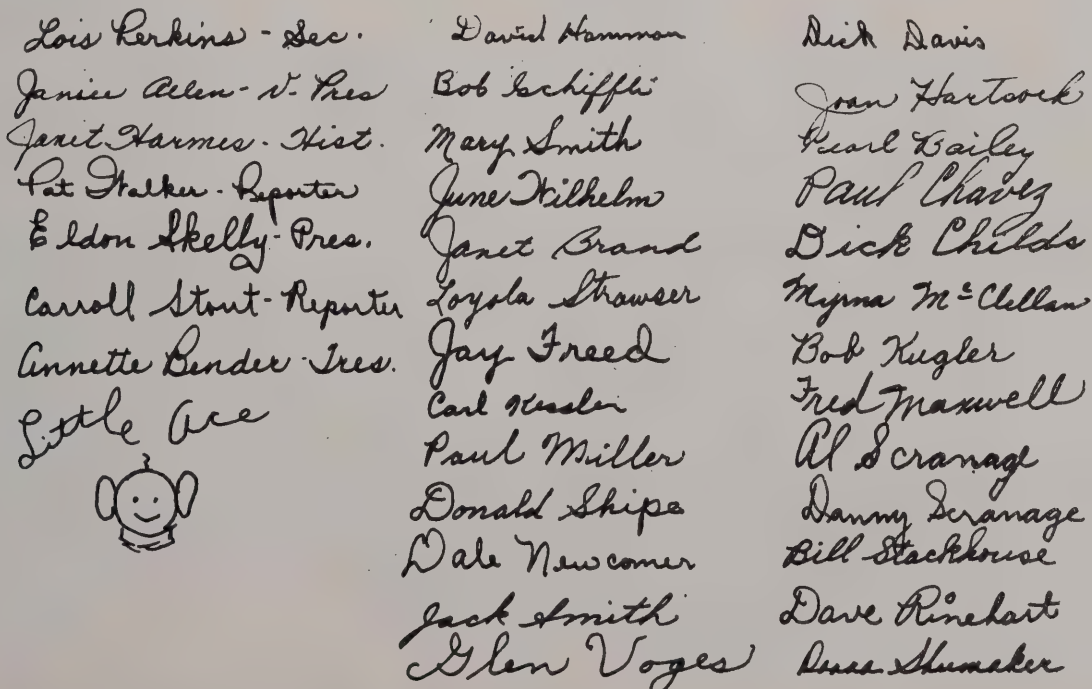 Lois Perkins - Sec.
Janice Allen - V-Pres
Janet Harmes - Hist.
Pat Walker - Reporter
Eldon Skelly - Pres.
Carroll Stout - Reporter
Annette Bender - Tres.
Little Ace
David Hammon
Bob Schiffli
Mary Smith
June Wilhelm
Janet Brand
Loyola Strawser
Jay Freed
Carl Kessler
Paul Miller
Donald Shipe
Dale Newcomer
Jack Smith
Glen Voges
Dick Davis
Joan Hartsock
Pearl Bailey
Paul Chavez
Dick Childs
Myrna McClellan
Bob Kugler
Fred Maxwell
Al Scranage
Danny Scranage
Bill Stackhouse
Dave Rinehart
Shumaker